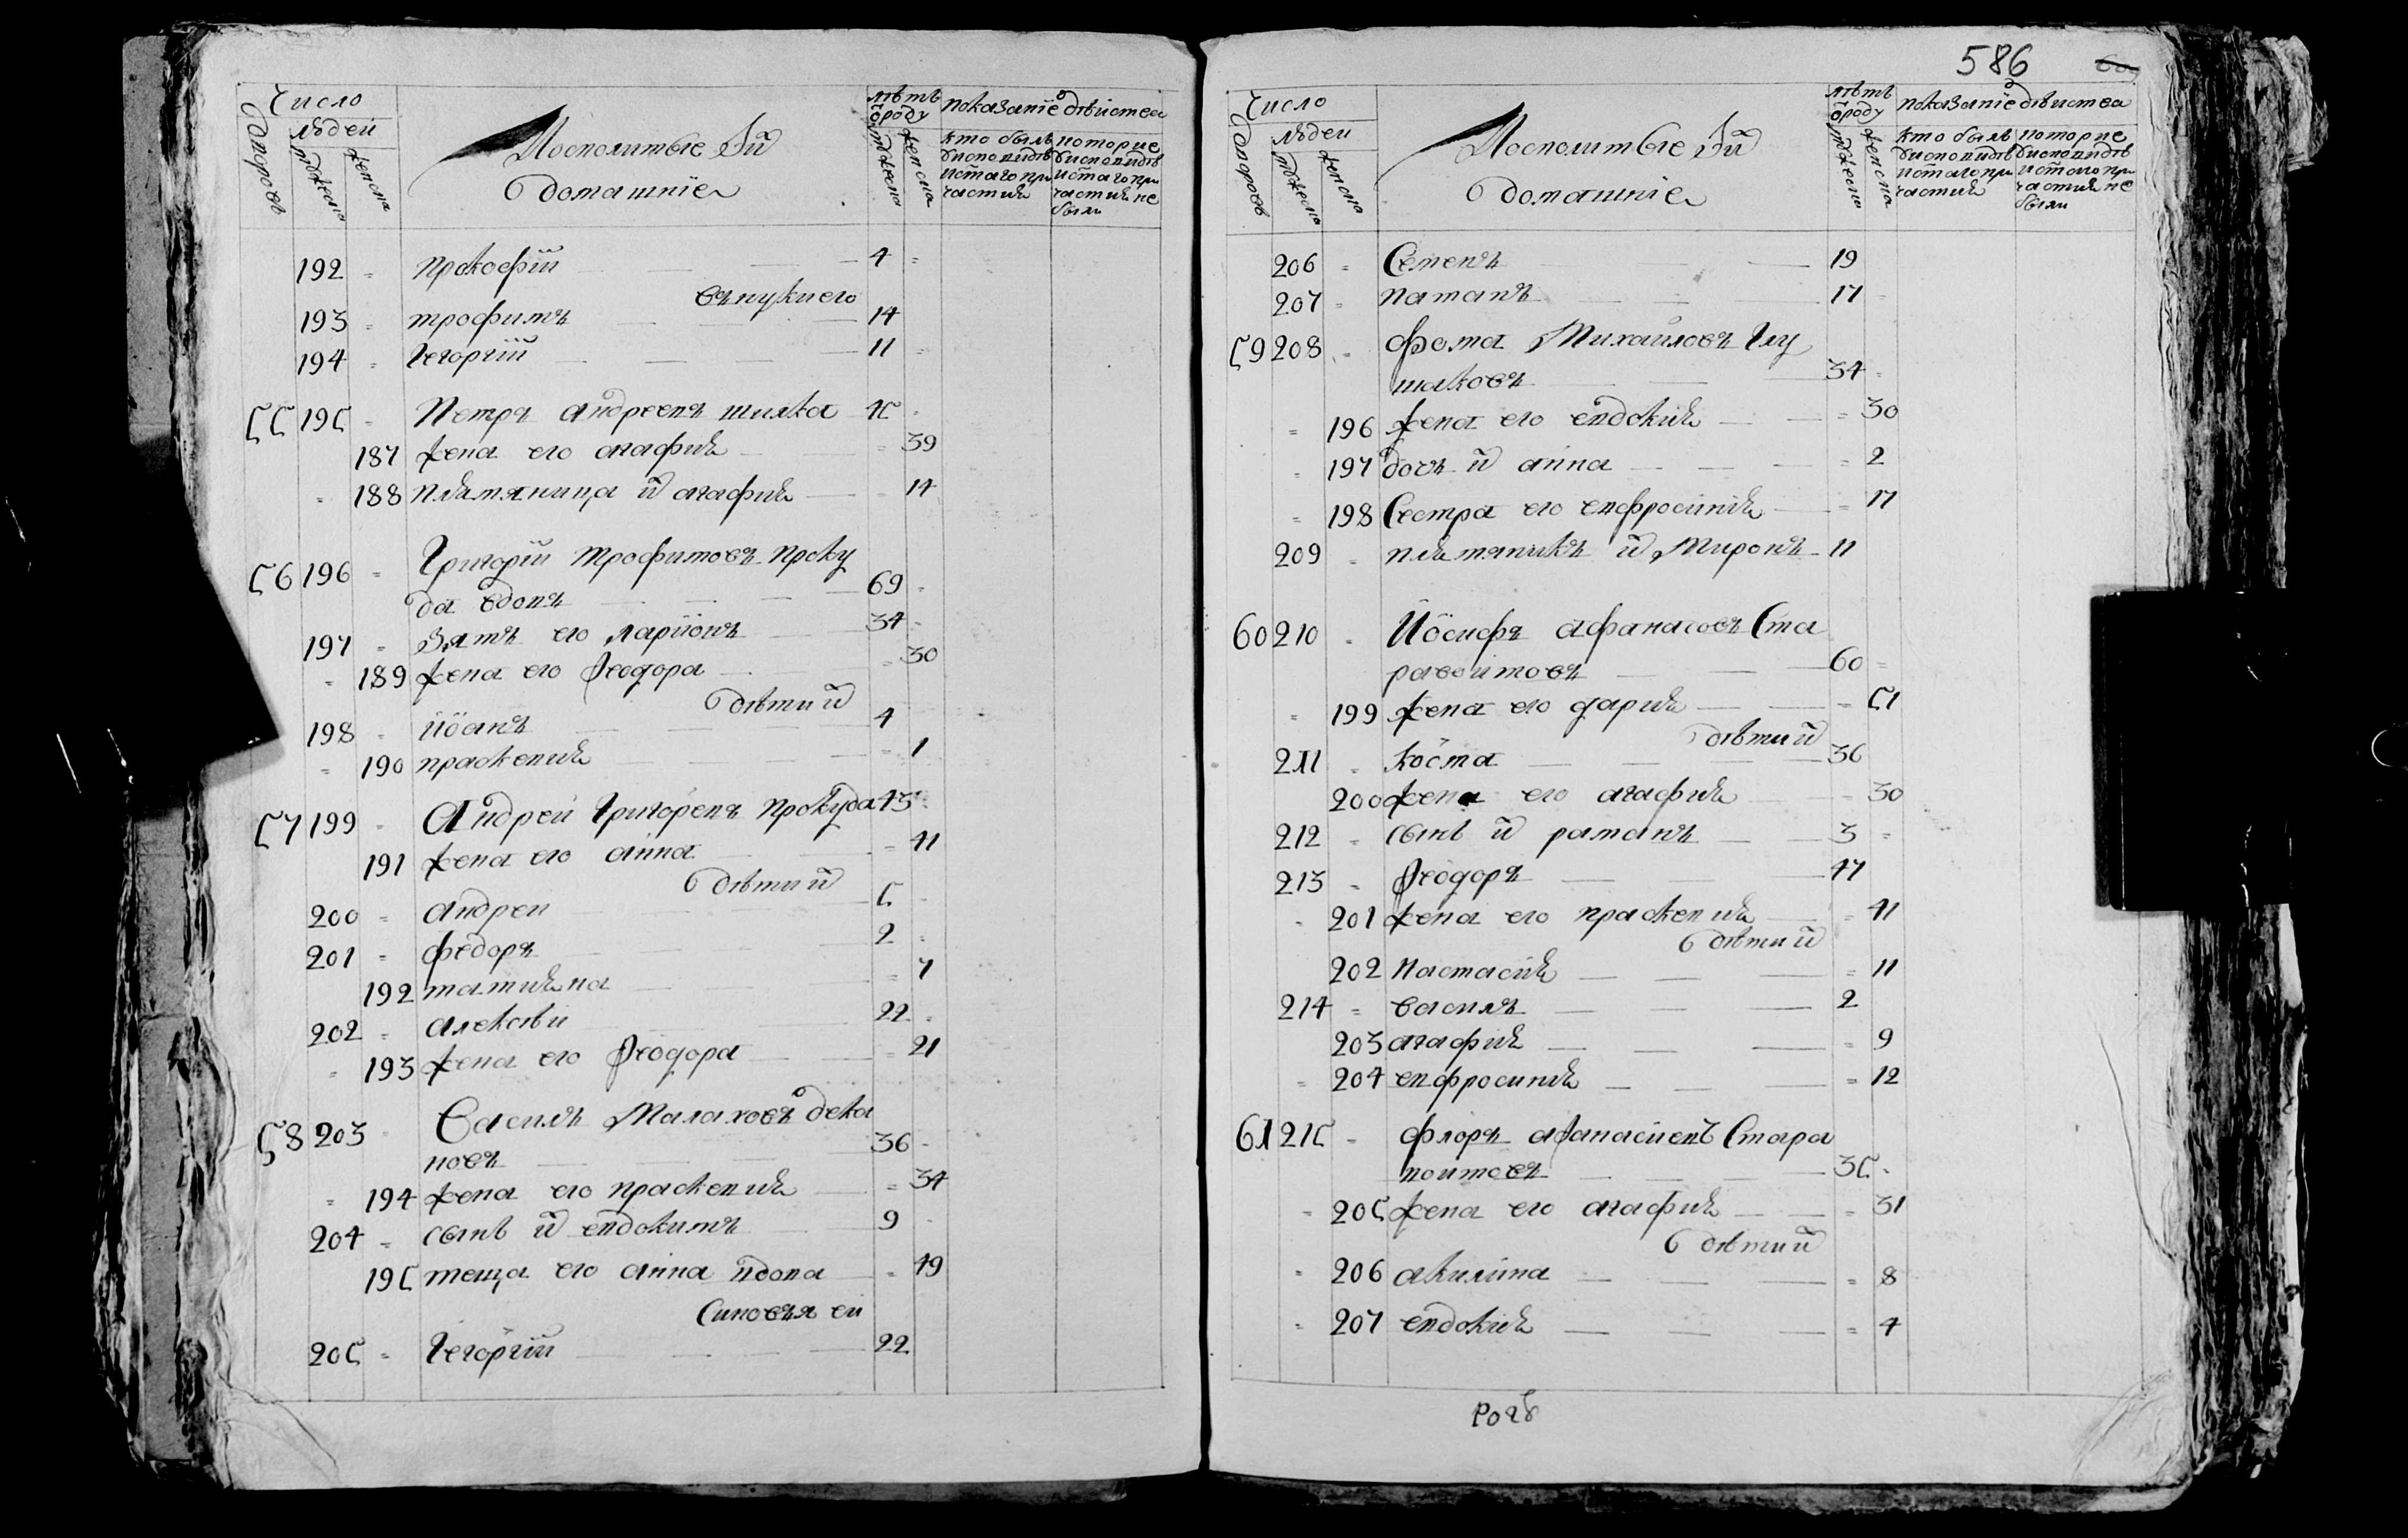 Число
людей
дворовъ
мужеска
женска
Посполитые Ӣ
домашніе
лѣтъ
ѿроду
мужеска
женска
показаніе дѣиства
кто былъ
висповѣдѣ
истаго при
частия
которие
висповѣдѣ
истаго при
частия не
были
192 прокофіи 4
внуки его
193 трофимъ 14
194 Георгіи 11
55 195 Петръ андреевъ шилка 45
187 жена его агафия 39
188 племяница ӣ агафия 14
56 196 Григоріи трофимовъ проку
да вдовъ 69
197 Зять его ларіонъ 34
189 жена его Ѳеодора 30
дѣти ӣ
198 іоанъ 4
190 праскевия 1
57 199 Андреи григоревъ прокуда 43
191 жена его анна 41
дѣти ӣ
200 андреи 5
201 федоръ 2
192 татияна 7
202 алексѣи 22
193 жена его Ѳеодора 21
58 203 Василь Малаховъ дека
новъ 36
194 жена его праскевия 34
204 сынъ ӣ евдокимъ 9
195 теща его анна вдова 49
Синовя еи
205 Георгіи 22
586
Число
людей
дворовъ
мужеска
женска
Посполитые Ӣ
домашніе
лѣтъ
ѿроду
мужеска
женска
показаніе дѣиства
кто былъ
висповѣдѣ
истаго при
частия
которие
висповѣдѣ
истаго при
частия не
были
206 Семенъ 19
207 натанъ 17
59 208 Фома Михаиловъ Глу
шаковъ 34
196 жена его евдокия 30
197 дочъ ӣ анна 2
198 Сестра его евфросиния 17
209 племяникъ ӣ Миронъ 11
60 210 Іосифъ афанасовъ Ста
равоитовъ 60
199 жена его дария 51
дѣти ӣ
211 косма 36
200 жена его агафия 30
212 сынъ ӣ раманъ 3
213 Ѳеодоръ 47
201 жена его праскевия 41
дѣти ӣ
202 настасия 11
214 василъ 2
203 агафия 9
204 евфросиния 12
61 215 флоръ афанасиевъ Стара
воитовъ 35
205 жена его агафия 31
дѣти ӣ
206 акилина 8
207 евдокия 4